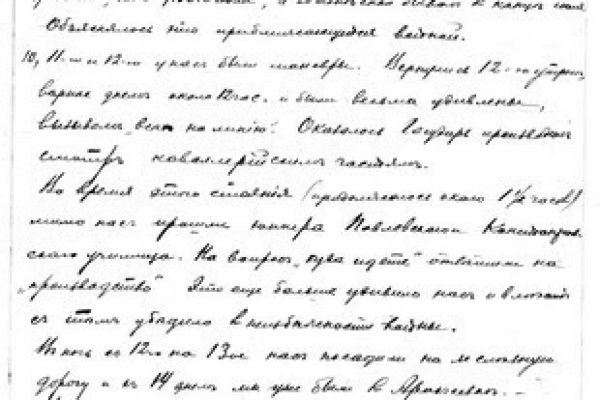 Объяснялось это приближающейся войной.
10, 11-го и 12-го у нас были маневры. Вернулись 12-го утром,
вернее днем около 12 час. и были весьма удивлены,
вызовом „всех на линию". Оказалось Государь производит
смотр кавалерийским частям.
Во время этого стояния (продолжалось около 1½ часов)
мимо нас прошли юнкера Павловского
училища. На вопрос „куда идете" ответили на
„производство" Это еще больше удивило нас и
с тем убедило в неизбежности войны.
В ночь с 12-го на 13-ое нас посадили на железную
дорогу и 14 днем мы уже были в